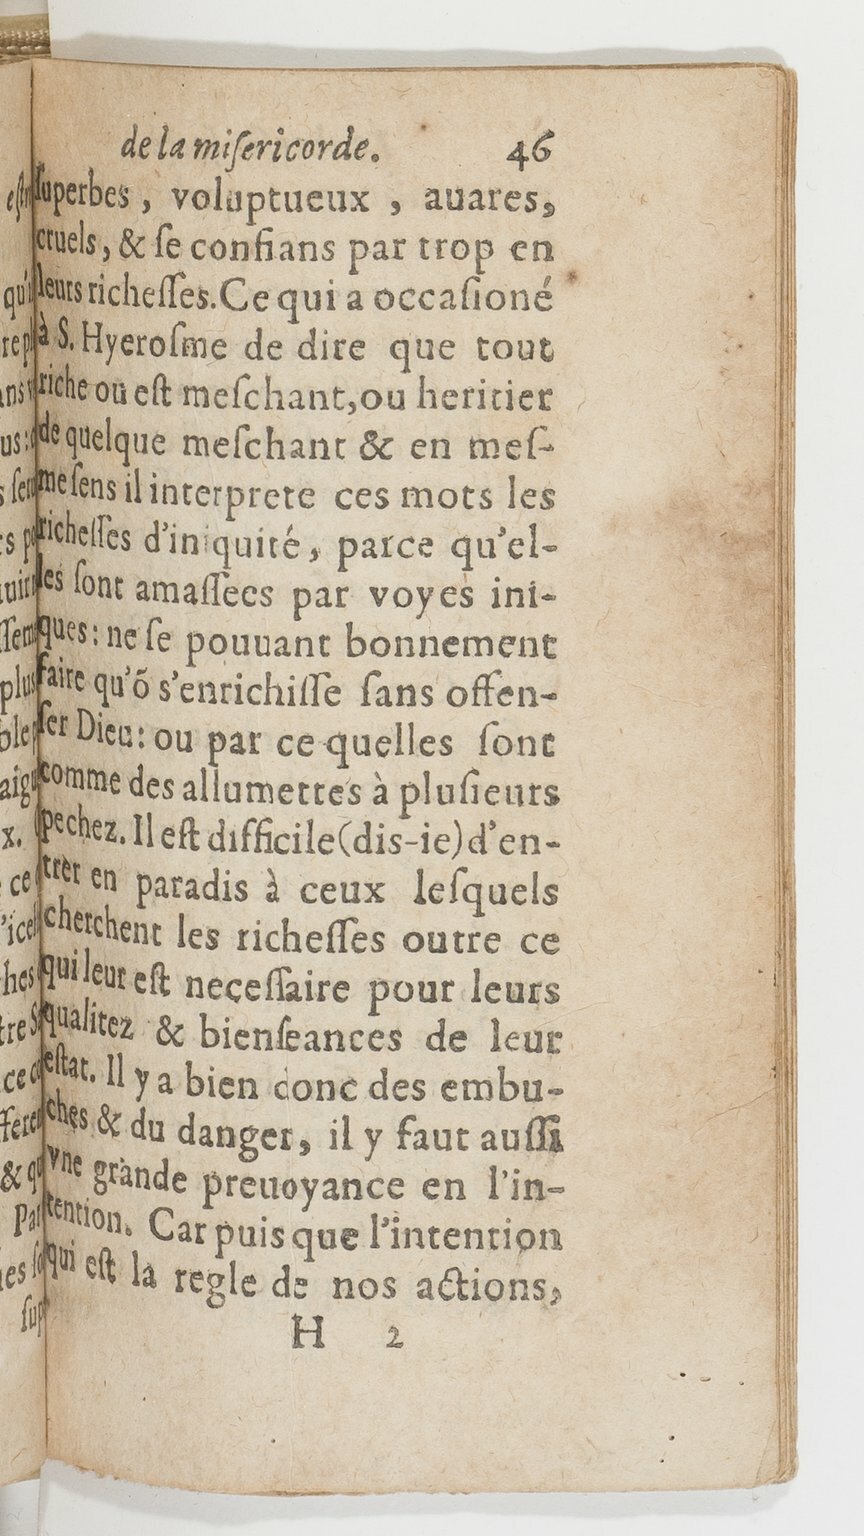 de la miſericorde. 46
ſuperbes, voluptueux, auares,
cruels, & ſe confians par trop en
leurs richeſſes. Ce qui a occaſioné
à S. Hyeroſme de dire que tout
riche ou eſt meſchant, ou heritier
de quelque meſchant & en meſ-
me ſens il interprete ces mots les
richeſſes d'iniquité, parce qu'el-
les ſont amaſſees par voyes ini-
ques: ne ſe pouuant bonnement
faire qu'õ s'enrichiſſe ſans offen-
ſer Dieu: ou par ce quelles ſont
comme des allumettes à pluſieurs
pechez. Il eſt difficile (dis-ie) d'en-
trer en paradis à ceux leſquels
cherchent les richeſſes outre ce
qui leur eſt neceſſaire pour leurs
qualitez & bienſeances de leur
eſtat. Il y a bien donc des embu-
ches & du danger, il y faut auſſi
vne grande preuoyance en l'in-
tention. Car puis que l'intention
qui eſt la regle de nos actions,
H 2